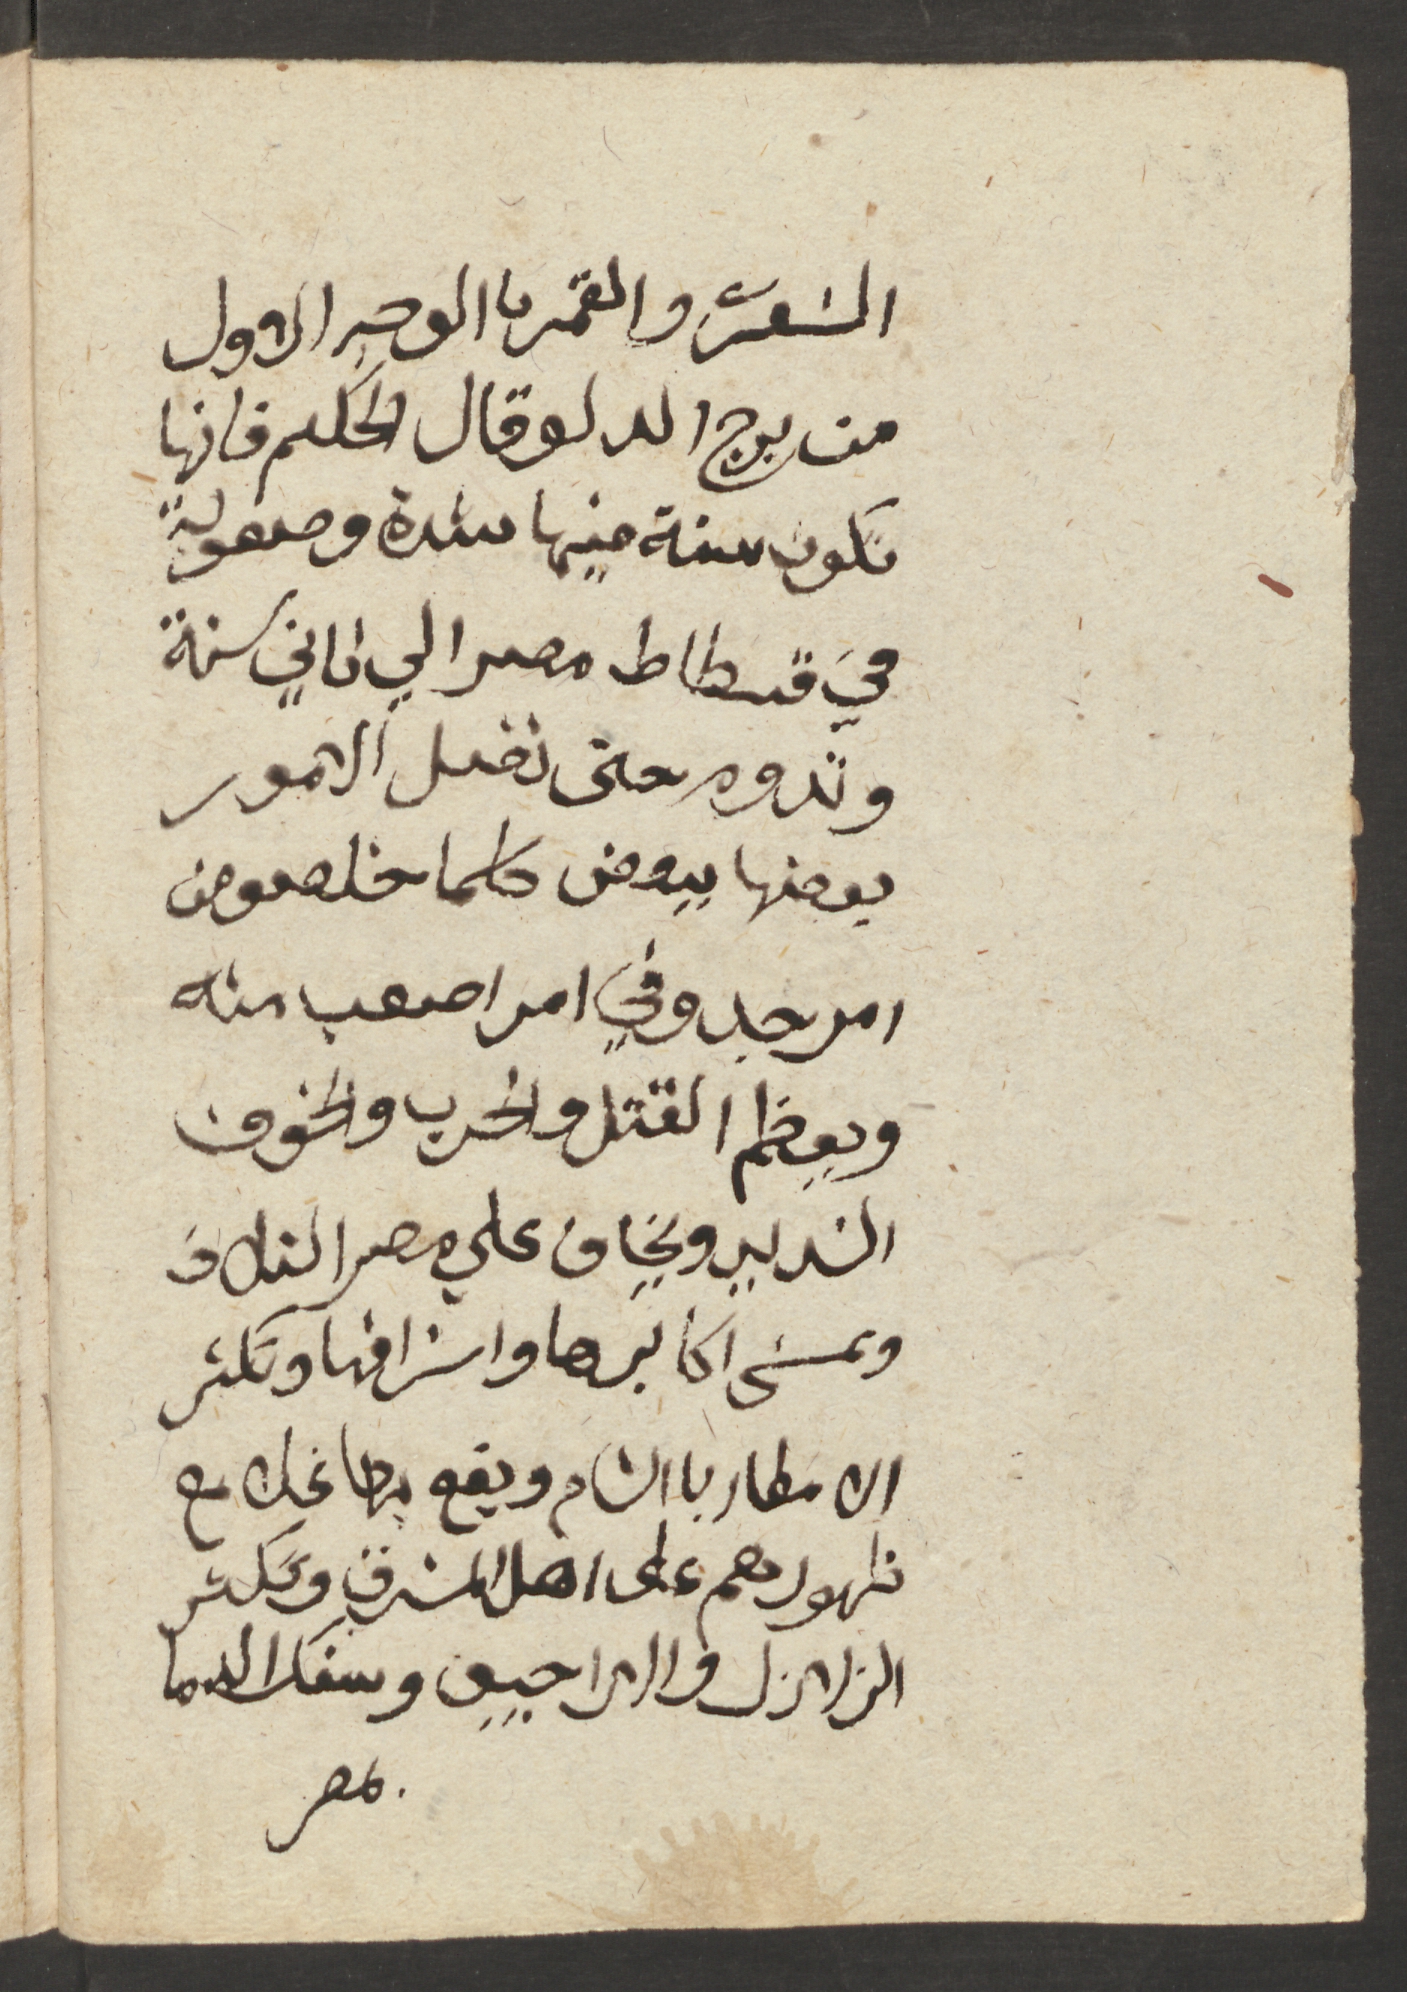 والقمر بالوجه الاول
من برج الدلو قال الحكيم فانها
تكون سنة فيها شدة وصعوبة
في قسطاط مصر الي ثاني سنة
وتدوم حتى تفسل الامور
بعضها ببعض كلما خلصو من
امر جد وفي امر اصعب منه
ويعظم القتل والحرب والخوف
الشديد ويخاف علي مصر التلاف
اكابرها واشرافها وتكثر
الامطار باالشام ويقع بها غلا مع
ظهورهم على اهل المشرق وتكثر
الزلازل والاراجيف وسفك الدما
بمصر